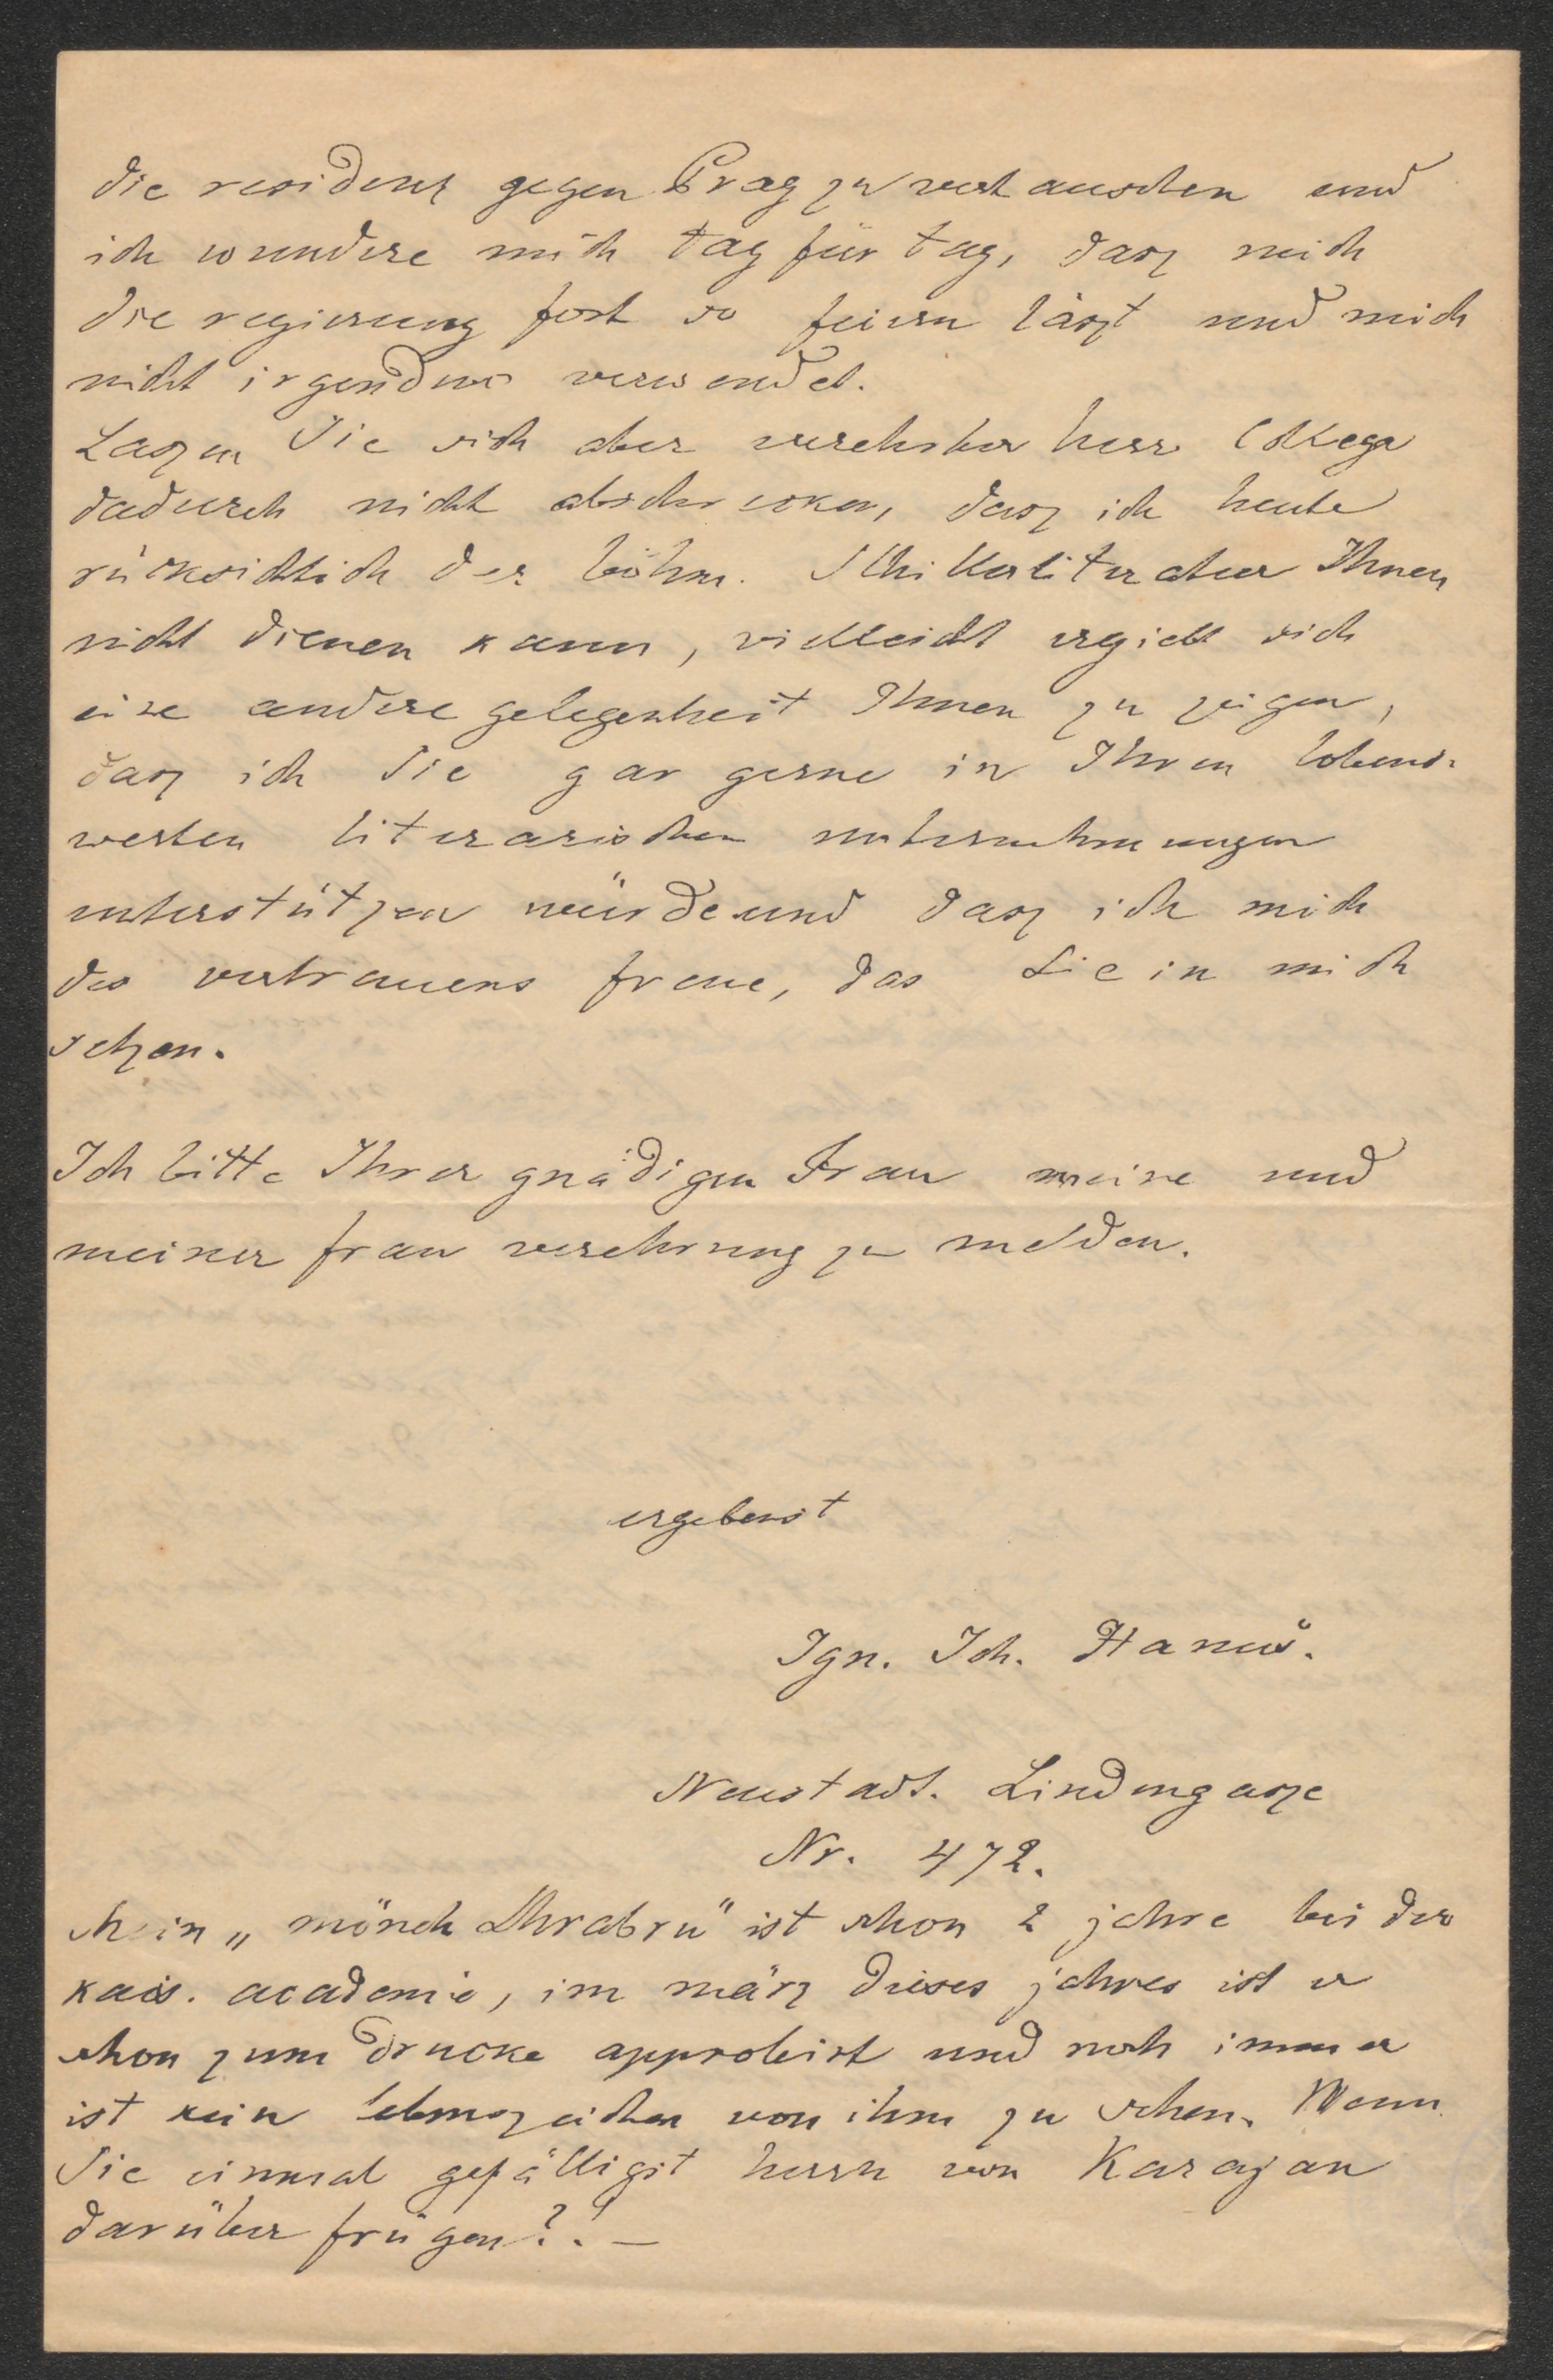 die residenz gegen Prag zu vertauschen und
ich wundere mich tag für tag, dasz mich
die regierung fort so feiern läszt und mich
nicht irgendwo verwendet.
Laszen Sie sich aber verehrter herr Collega
dadurch nicht abschrecken, dasz ich heute
rücksichtlich der böhm. Schillerliteratur Ihnen
nicht dienen kann, vielleicht ergiebt sich
eine andere gelegenheit Ihnen zu zeigen,
dasz ich Sie gar gerne in Ihren lobens-
werten literarischen unternehmungen
unterstützen würde und dasz ich mich
des vertrauens freue, das Sie in mich
setzen.
Ich bitte Ihrer gnädigen Frau meine und
meiner frau verehrung zu melden.
ergebenst
Ign. Joh. Hanuš.
Neustadt. Lindengasze
Nr. 472.
Mein „mönch Chrabru" ist schon 2 jahre bei der
kais. academie, im märz dieses jahres ist er
schon zum drucke approbirt und noch immer
ist kein lebenszeichen von ihm zu sehen. Wenn
Sie einmal gefälligst herrn von Karajan
darüber frügen?! —